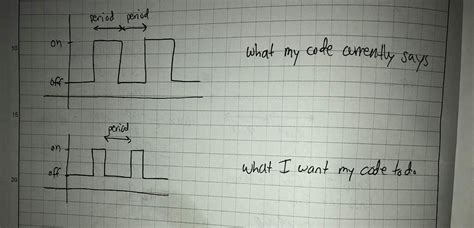 period period
10
on
what my code currently says
off
15
period
on
off
what I want my code to do.
20